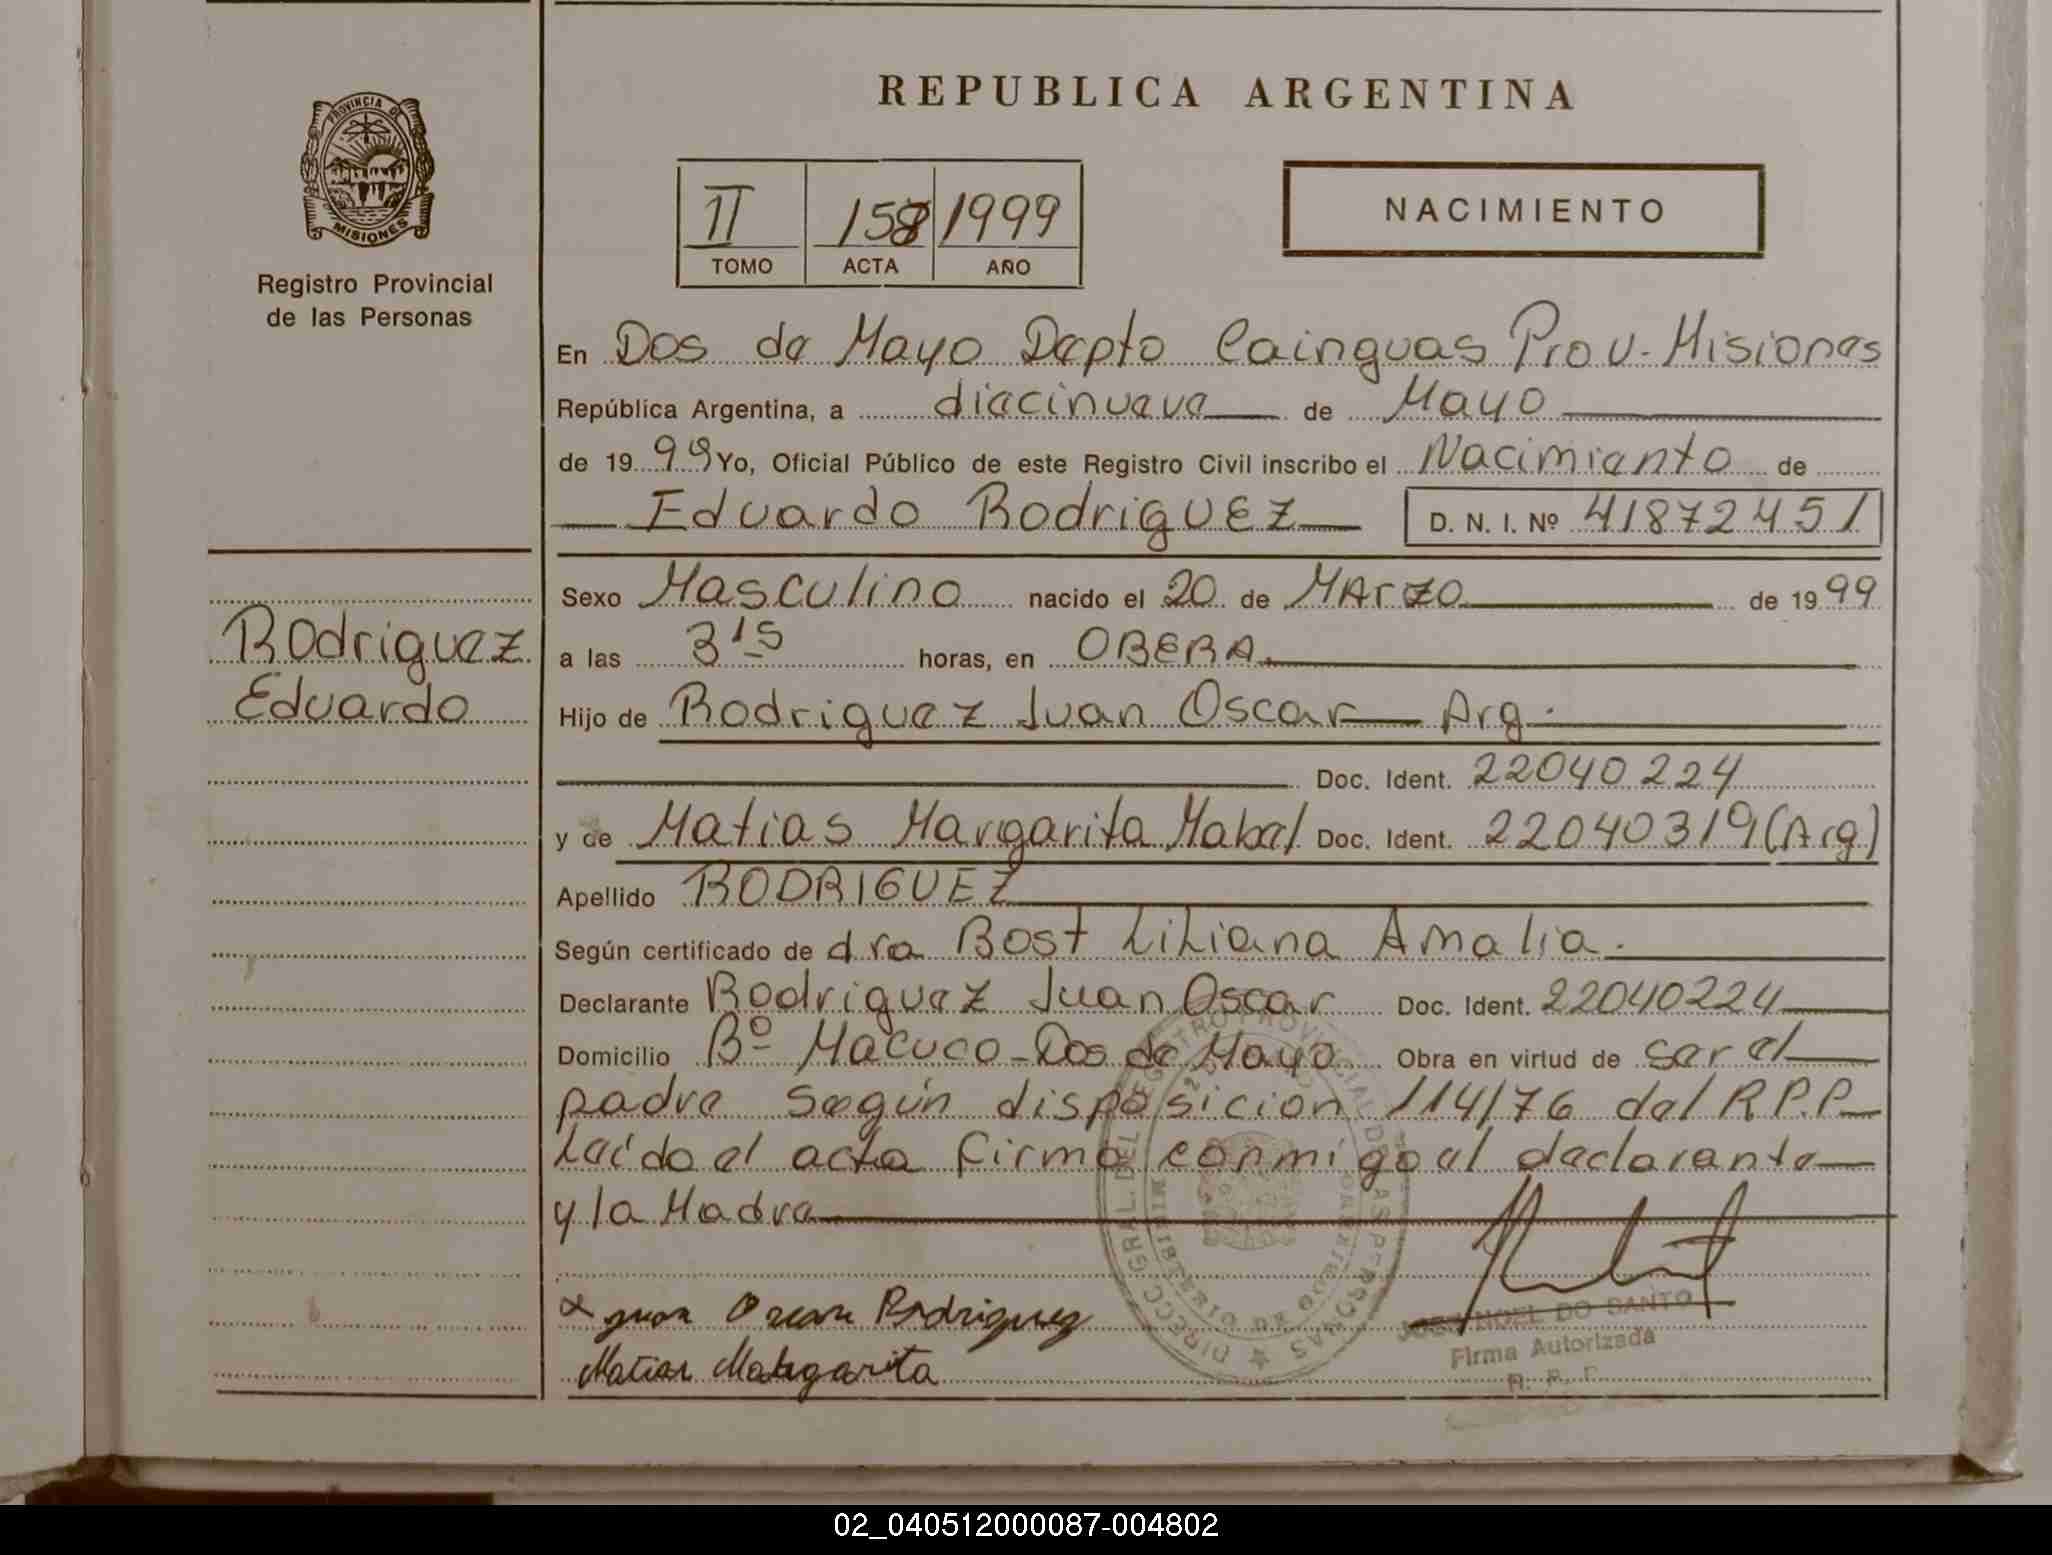 REPUBLICA ARGENTINA
PROVINCIA DE
MISIONES
Registro Provincial
de las Personas
II 158 1999
TOMO ACTA AÑO
NACIMIENTO
En Dos de Mayo Depto Cainguas Prov. Misiones
República Argentina, a diecinueve de Mayo
de 1999 Yo, Oficial Público de este Registro Civil inscribo el Nacimiento de
Eduardo Rodriguez D. N. I. Nº 41872451
Sexo Masculino nacido el 20 de MArzo de 1999
Rodriguez
Eduardo
a las 3 15 horas, en OBERA
Hijo de Rodriguez Juan Oscar Arg.
Doc. Ident. 22040224
y de Matias Margarita Mabel Doc. Ident. 22040319 (Arg)
Apellido RODRIGUEZ
Según certificado de dra Bost Liliana Amalia.
Declarante Rodriguez Juan Oscar Doc. Ident. 22040224
Domicilio Bº Macuco - Dos de Mayo Obra en virtud de ser el
padre según disposicion 114/76 del R.P.P
Leído el acta firma conmigo el declarante
y la Madre
Juan Oscar Rodriguez
Matias Margarita
JOSE NOEL DO SANTO
Firma Autorizada
02_040512000087-004802